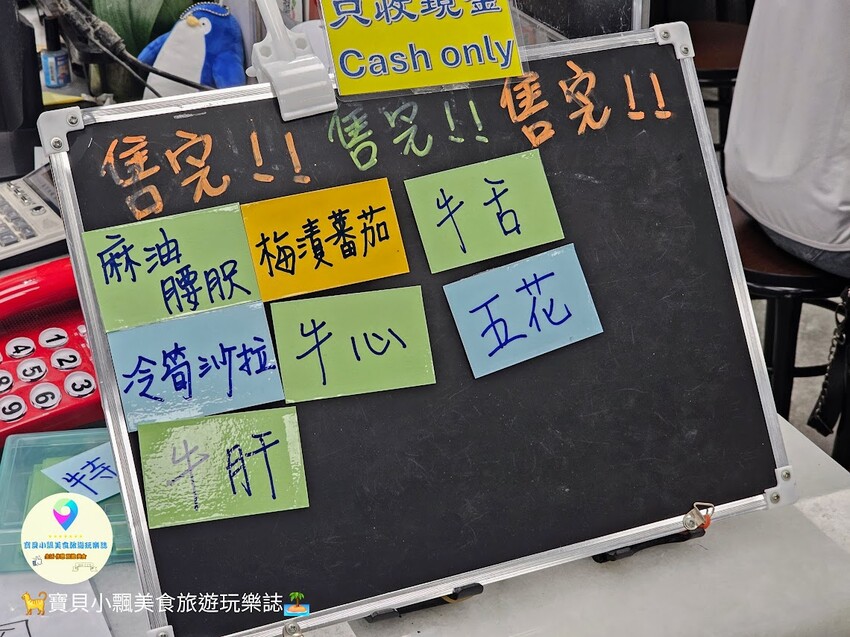 只收現金
Cash only
售完!! 售完!! 售完!!
麻油
腰尺
梅漬蕃茄
牛舌
冷筍沙拉
牛心
五花
牛肝
特
1
2
3
4
5
6
9
寶貝小飄美食旅遊玩樂誌
寶貝小飄美食旅遊玩樂誌